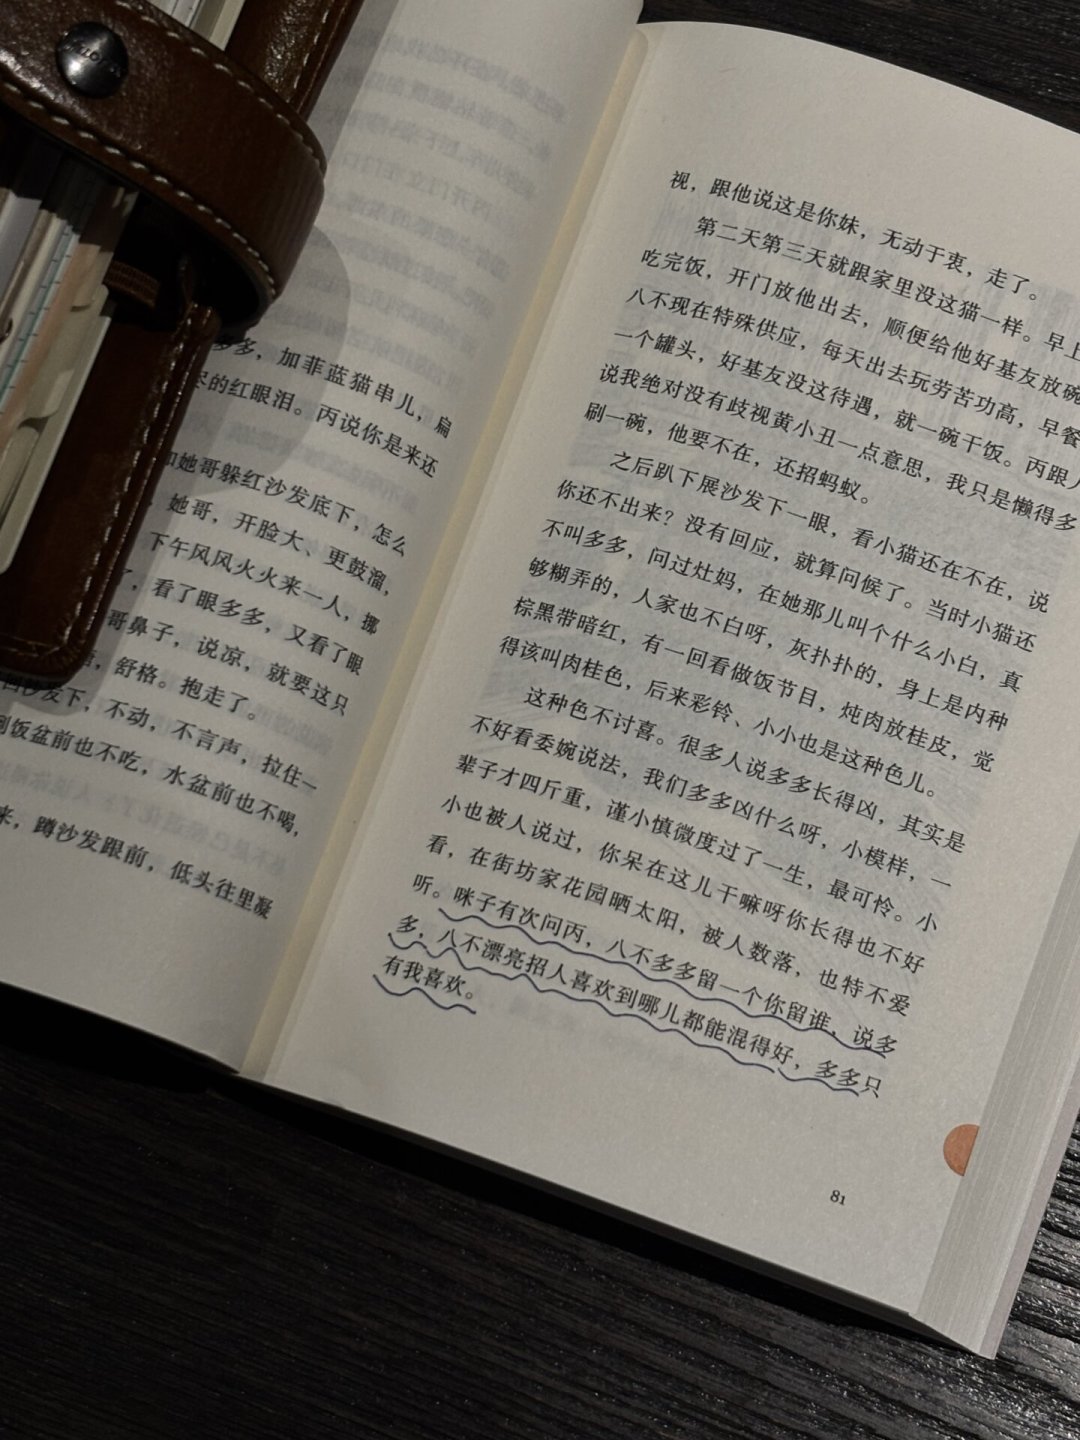 多，加菲蓝猫串儿，扁
的红眼泪。丙说你是来还
她哥躲红沙发底下，怎么
她哥，开脸大、更鼓溜，
下午风风火火来一人，挪
，看了眼多多，又看了眼
哥鼻子，说凉，就要这只
，舒格。抱走了。
回沙发下，不动，不言声，拉住一
到饭盆前也不吃，水盆前也不喝，
来，蹲沙发跟前，低头往里凝
视，跟他说这是你妹，无动于衷，走了。
第二天第三天就跟家里没这猫一样。早上
吃完饭，开门放他出去，顺便给他好基友放碗
八不现在特殊供应，每天出去玩劳苦功高，早餐
一个罐头，好基友没这待遇，就一碗干饭。丙跟
说我绝对没有歧视黄小丑一点意思，我只是懒得多
刷一碗，他要不在，还招蚂蚁。
之后趴下展沙发下一眼，看小猫还在不在，说
你还不出来？没有回应，就算问候了。当时小猫还
不叫多多，问过灶妈，在她那儿叫个什么小白，真
够糊弄的，人家也不白呀，灰扑扑的，身上是内种
棕黑带暗红，有一回看做饭节目，炖肉放桂皮，觉
得该叫肉桂色，后来彩铃、小小也是这种色儿。
这种色不讨喜。很多人说多多长得凶，其实是
不好看委婉说法，我们多多凶什么呀，小模样，一
辈子才四斤重，谨小慎微度过了一生，最可怜。小
小也被人说过，你呆在这儿干嘛呀你长得也不好
看，在街坊家花园晒太阳，被人数落，也特不爱
听。咪子有次问丙，八不多多留一个你留谁，说多
多，八不漂亮招人喜欢到哪儿都能混得好，多多只
有我喜欢。
81